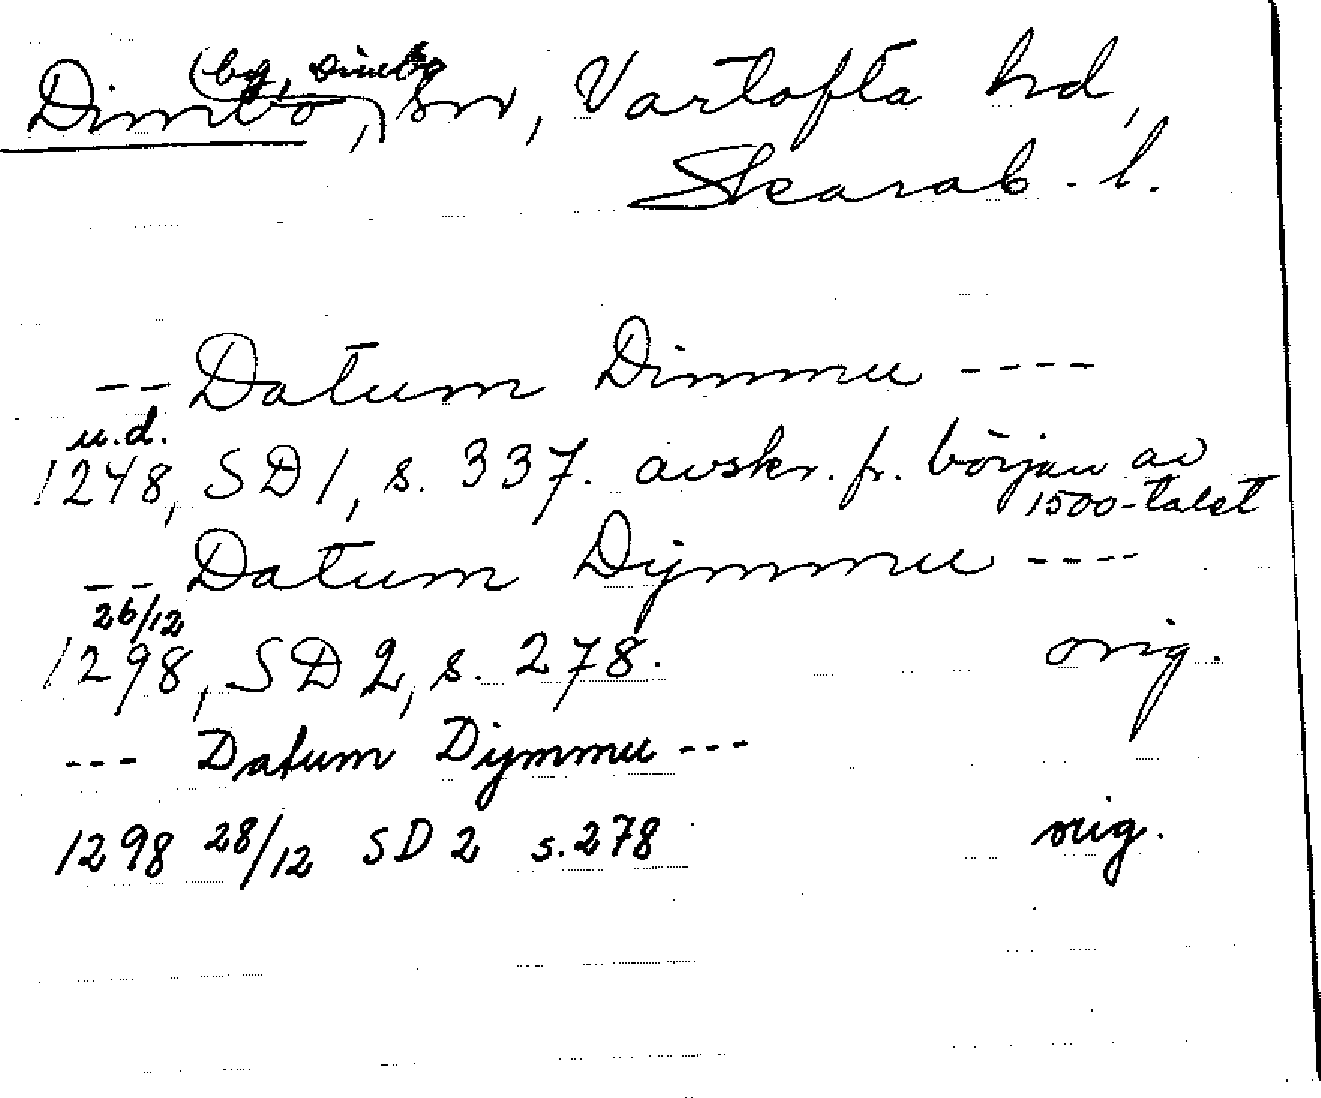 (by, Dimbo
Dimbo,) sn, Vartofta hd,
Skarab. l.
-- Datum Dimmu ----
u.d.
1248, SD 1, s. 337. avskr. fr. början av
1500-talet
-- Datum Dijmmu ----
26/12
1298, SD 2, s. 278. orig.
--- Datum Dijmmu ---
1298 28/12 SD 2 s. 278 orig.